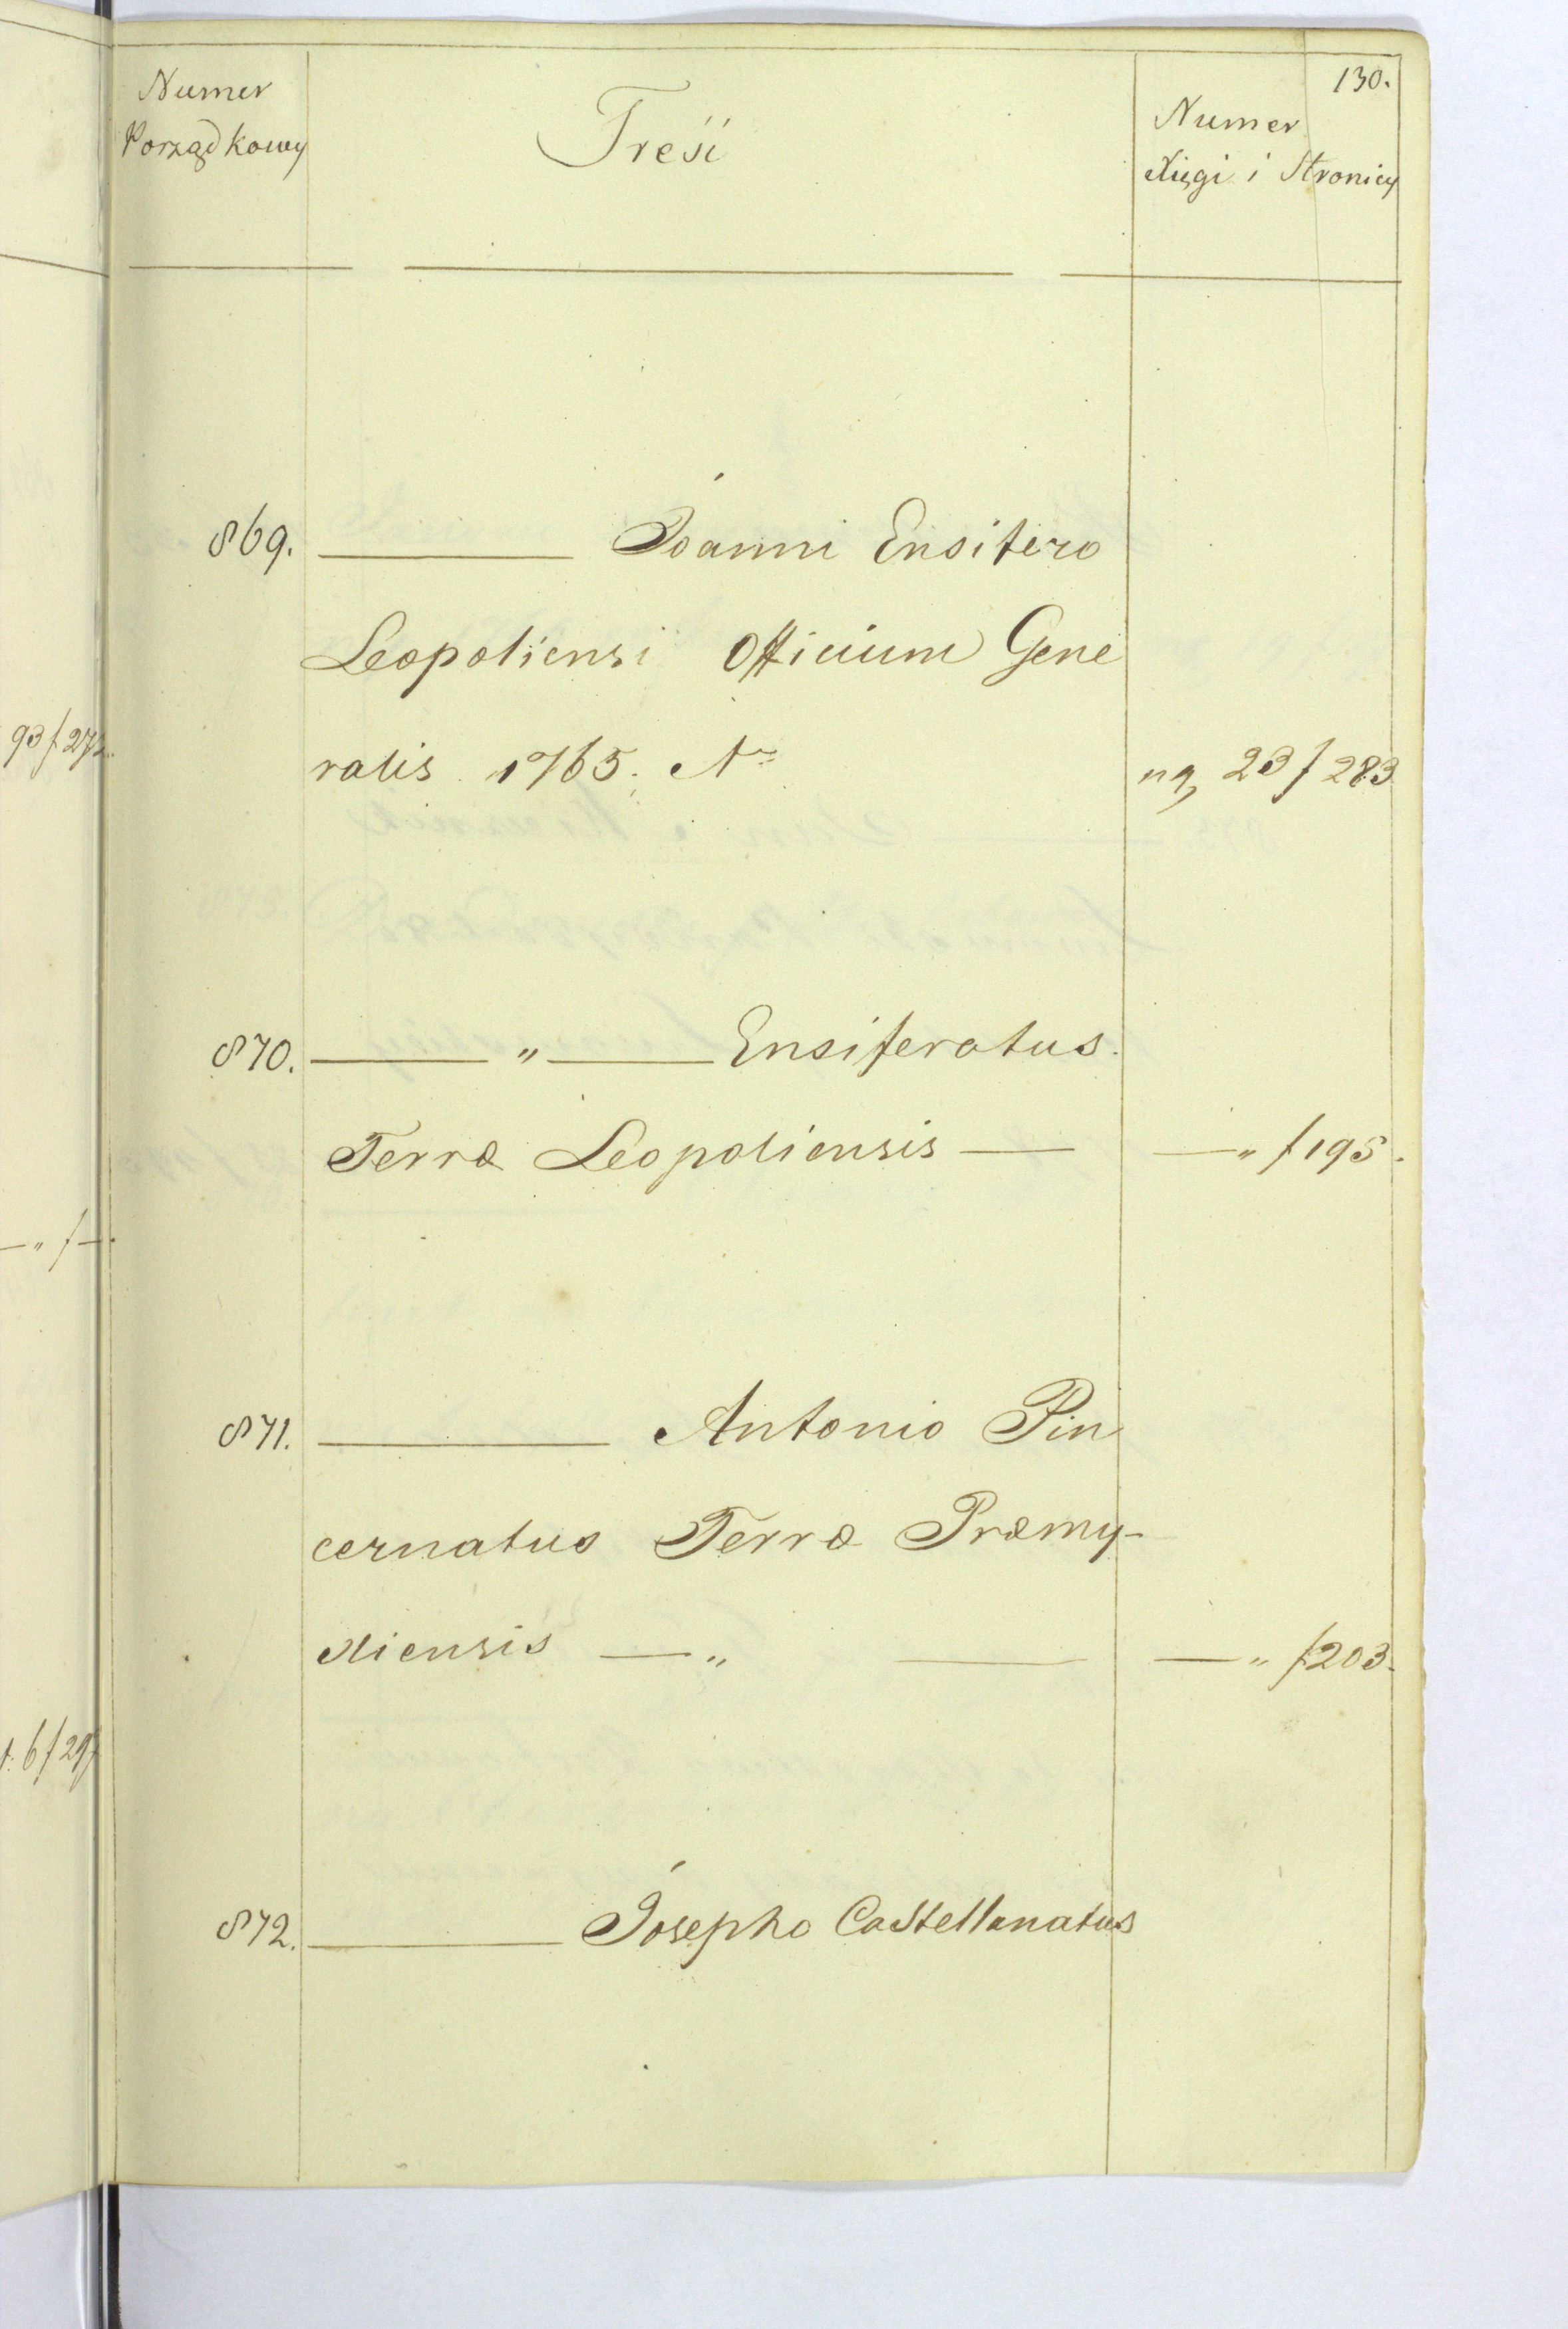 130.
Numer
Porządkowy
Treść
Numer
Xięgi i Stronicy
869. ——— Joanni Ensifero
Leopoliensi Officium Gene
ralis 1765. 23 f 283
93 f 272.
870. —— " —— Ensiferatus.
Terræ Leopoliensis — —" f 195.
—" f —.
871. ——— Antonio Pin
cernatus Terræ Præmy-
sliensis —" —— —" f 203.
6 f 297
872. ——— Josepho Castellanatus